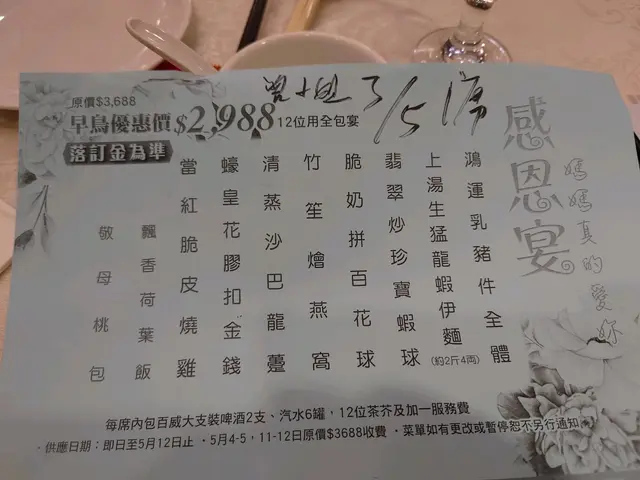 原價$3,688
早鳥優惠價$2,988 12位用全包宴
落訂金為準
3/5
感恩宴
媽媽真的愛妳
鴻運乳豬件全體
上湯生猛龍蝦伊麵(約2斤4両)
翡翠炒珍寶蝦球
脆奶拼百花球
竹笙燴燕窩
清蒸沙巴龍躉
蠔皇花膠扣金錢
當紅脆皮燒雞
飄香荷葉飯
敬母桃包
每席內包百威大支裝啤酒2支、汽水6罐，12位茶芥及加一服務費
·供應日期：即日至5月12日止 ·5月4-5，11-12日原價$3688收費 ·菜單如有更改或暫停恕不另行通知